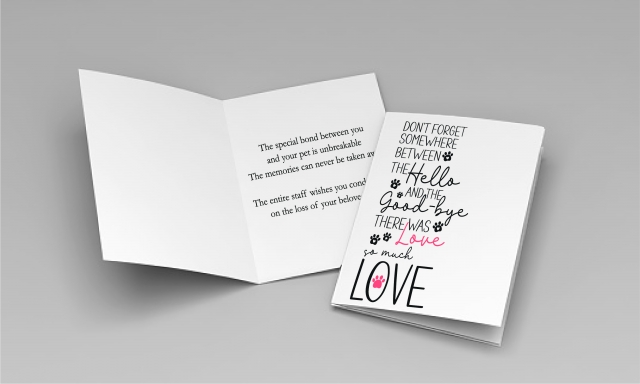 The special bond between you
and your pet is unbreakable
The memories can never be taken
The entire staff wishes you
on the loss of your
DON'T FORGET
SOMEWHERE
BETWEEN
THE Hello
AND THE
Good-bye
THERE WAS
Love
so much
LOVE